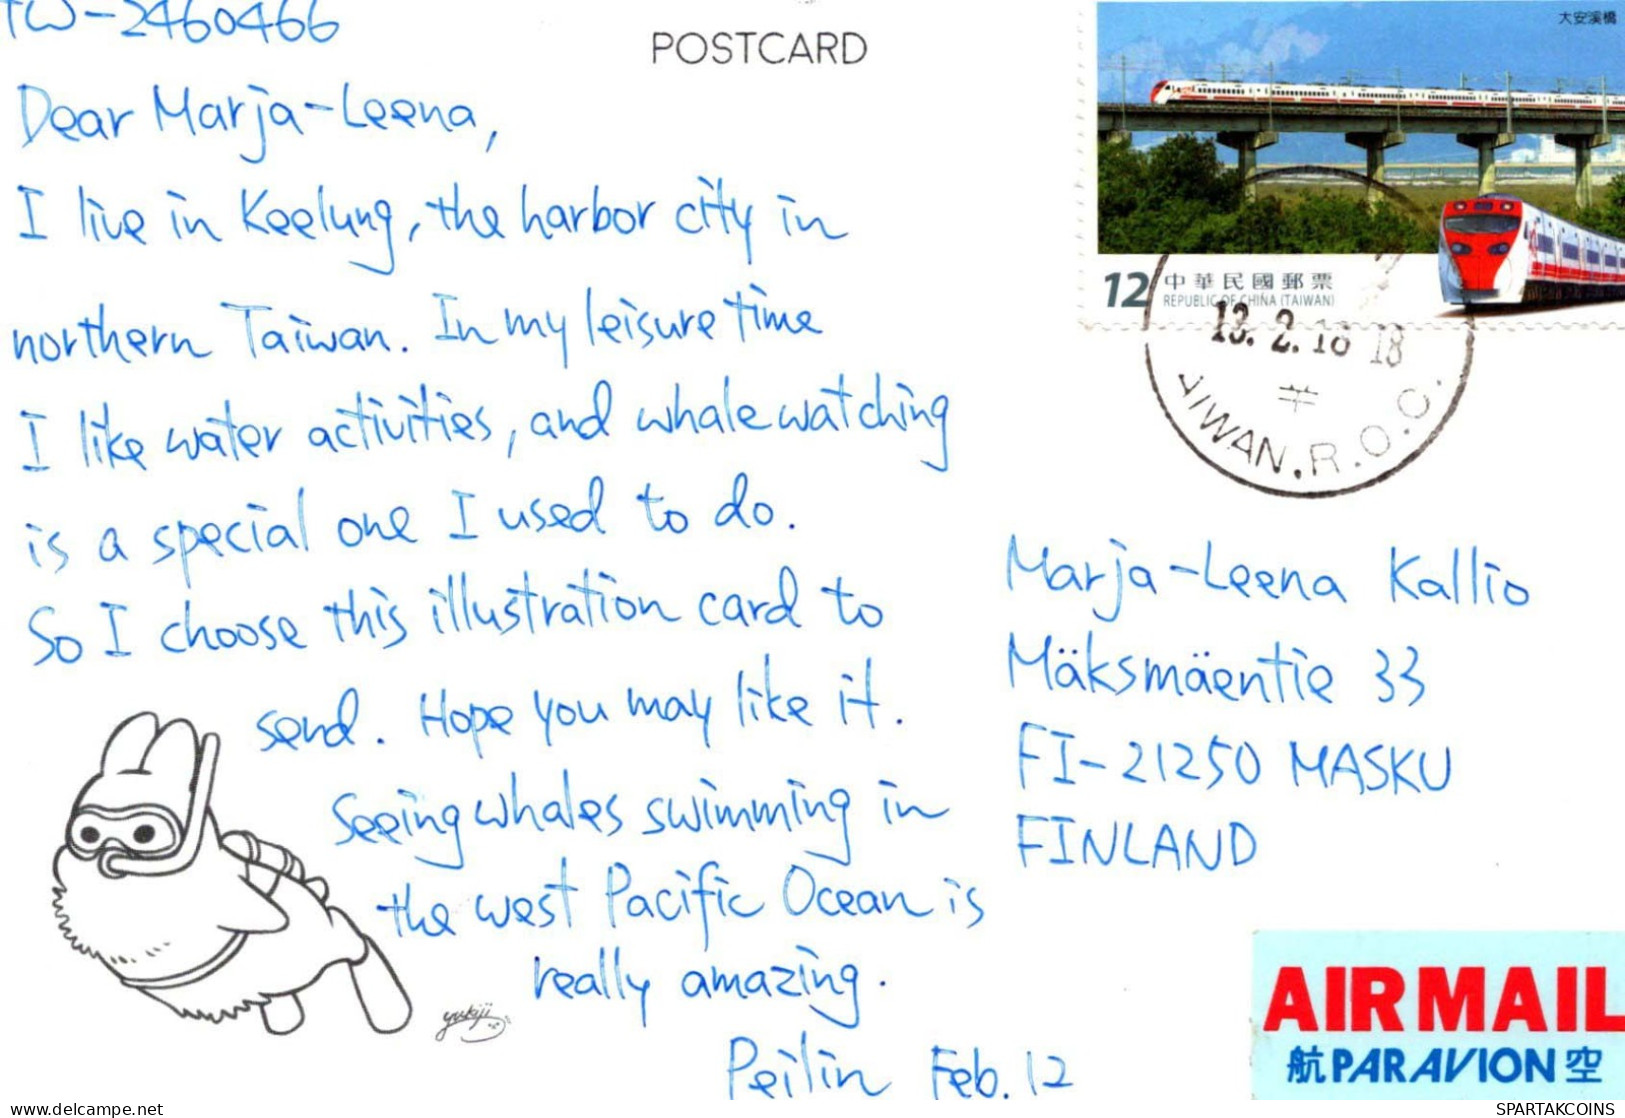 TW-2460466
POSTCARD
Dear Marja-Leena,
I live in Keelung, the harbor city in
northern Taiwan. In my leisure time
I like water activities, and whale watching
is a special one I used to do.
So I choose this illustration card to
send. Hope you may like it.
Seeing whales swimming in
the west Pacific Ocean is
really amazing.
Peilin Feb. 12
yukiji
大安溪橋
12 中華民國郵票
REPUBLIC OF CHINA (TAIWAN)
13. 2. 18 18
AIWAN. R. O. C.
Marja-Leena Kallio
Mäksmäentie 33
FI-21250 MASKU
FINLAND
AIR MAIL
航 PAR AVION 空
yukiji-delcampe.net
SPARTAKCOINS